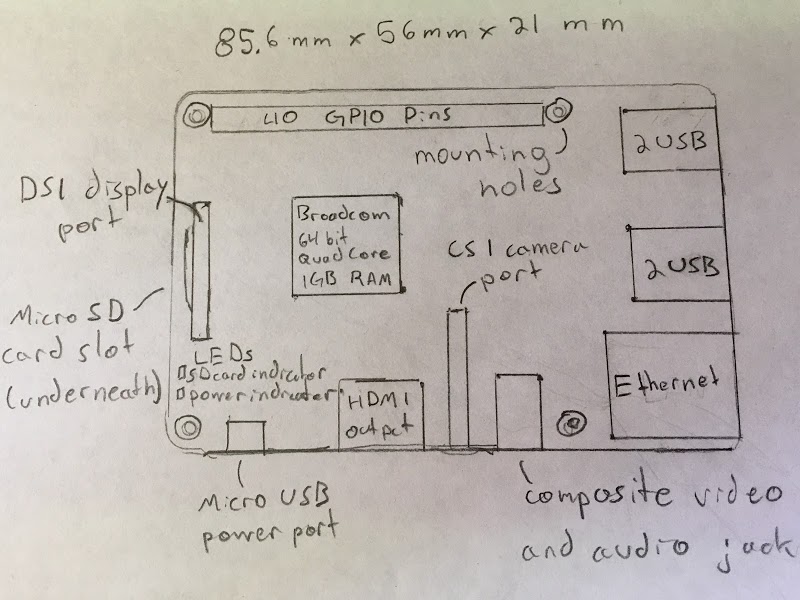 85.6 mm x 56mm x 21 mm
40 GPIO Pins
mounting
holes
2 USB
DSI display
port
Broadcom
64 bit
Quad Core
1GB RAM
CSI camera
port
2 USB
Micro SD
card slot
(underneath)
LEDs
SD card indicator
power indicator
HDMI
output
Ethernet
Micro USB
power port
composite video
and audio jack